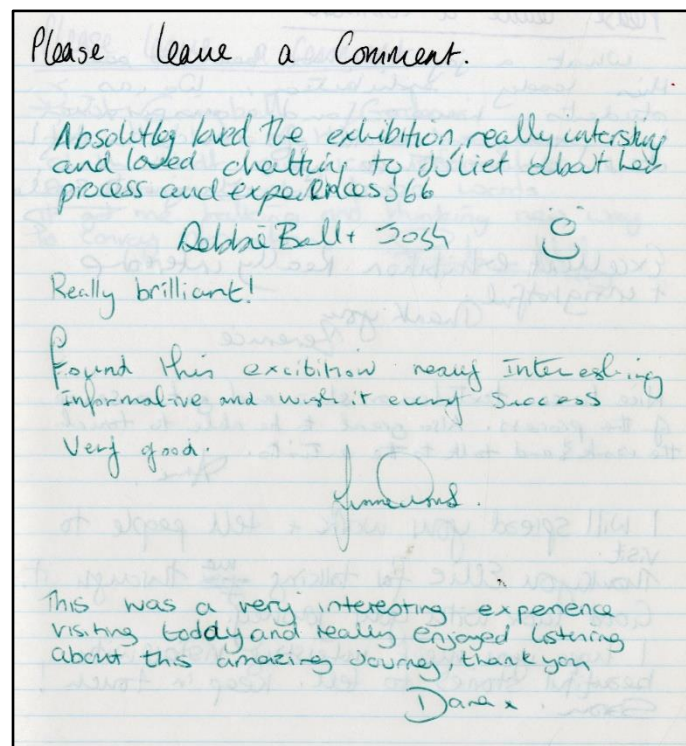 Please leave a Comment.
Absolutley loved the exhibition, really intersting
and loved chatting to Juliet about her
process and experiences
Debbie Ball + Josh
Really brilliant!
Found this excibition really Interesting
Informative and wish it every Success
Very good.
This was a very interesting experience
visiting today and really enjoyed listning
about this amazing Journey, thank you
Dana x